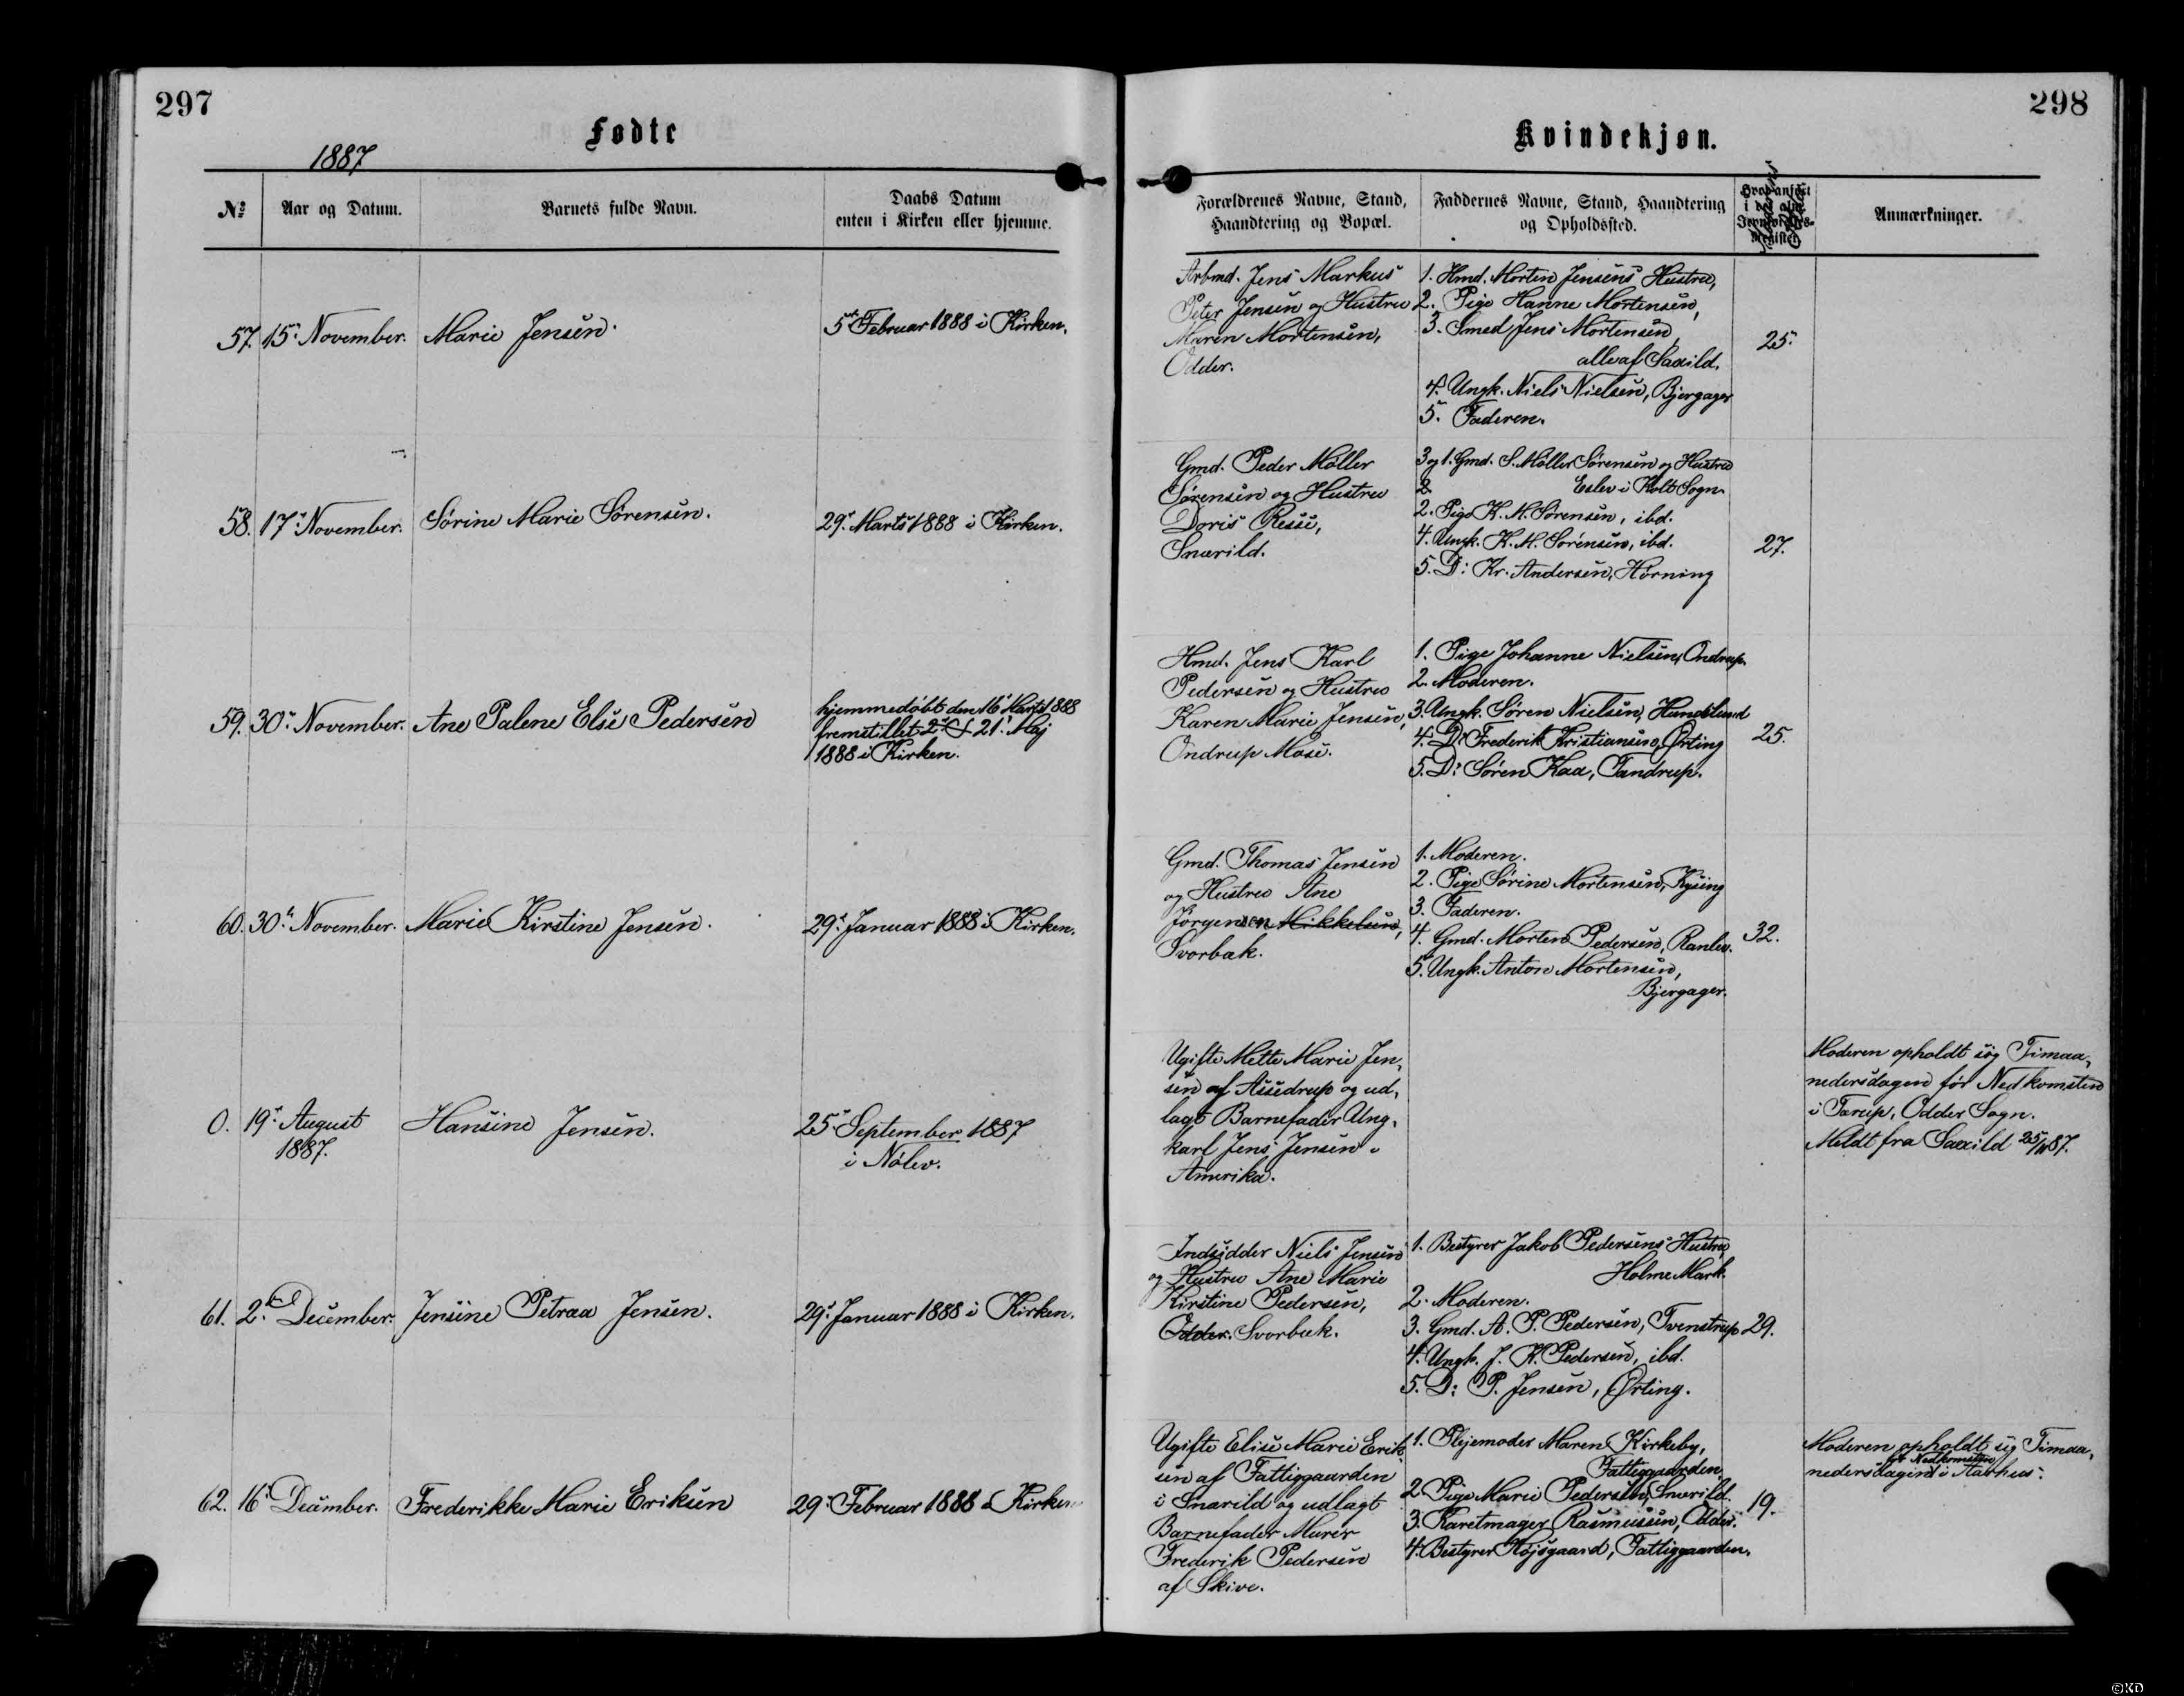 297
298
Fødte
Kvindekjøn.
1887
No
Aar og Datum.
Barnets fulde Navn.
Daabs Datum
enten i Kirken eller hjemme.
Forældrenes Navne, Stand,
Haandtering og Bopæl.
Faddernes Navne, Stand, Haandtering
og Opholdssted.
Anmærkninger.
57.
15. November.
Marie Jensen.
5te Februar 1888 i Kirken.
Arbmd. Jens Markus
Peter Jensen og Hustru
Maren Mortensen,
Odder.
1. Hmd. Morten Jensens Hustru,
2. Pige Hanne Mortensen,
3. Smed Jens Mortensen,
alle af Saxild.
4. Ungk. Niels Nielsen, Bjergager
5. Faderen.
25.
58.
17. November.
Sørine Marie Sørensen.
29. Marts 1888 i Kirken.
Gmd. Peder Møller
Sørensen og Hustru
Doris Resse,
Snærild.
3 og 1. Gmd. S. Møller Sørensen og Hustru
2. Eslev i Kolt Sogn
2. Pige K. M. Sørensen, ibd.
4. Ungk. K. M. Sørensen, ibd.
5. D: Kr. Andersen, Hørning
27.
59.
30. November.
Ane Palene Else Pedersen
hjemmedøbt den 16 Marts 1888
fremstillet 2. 21. Maj
1888 i Kirken.
Hmd. Jens Karl
Pedersen og Hustru
Karen Marie Jensen,
Ondrup Mose.
1. Pige Johanne Nielsen, Ondrup.
2. Moderen.
3. Ungk. Søren Nielsen, Hundslund
4. D: Frederik Kristiansen, Ørting
5. D: Søren Kaa, Tandrup.
25.
60.
30. November.
Marie Kirstine Jensen.
29. Januar 1888 i Kirken.
Gmd. Thomas Jensen
og Hustru Ane
Jørgensen Mikkelsen,
Svorbæk.
1. Moderen.
2. Pige Sørine Mortensen, Kysing
3. Faderen.
4. Gmd. Morten Pedersen, Ranlev.
5. Ungk. Anton Mortensen,
Bjergager.
32.
0.
19. August
1887.
Hansine Jensen.
25. September 1887
i Nølev.
Ugifte Mette Marie Jen-
sen af Assedrup og ud-
lagt Barnefader Ung-
karl Jens Jensen i
Amerika.
Moderen opholdt sig Timaa-
nedersdagen før Nedkomsten
i Torup, Odder Sogn.
Meldt fra Saxild 87.
61.
2. December.
Jensine Petraa Jensen.
29. Januar 1888 i Kirken.
Indsidder Niels Jensen
og Hustru Ane Marie
Kirstine Pedersen,
Odder. Svorbæk.
1. Bestyrer Jakob Pedersens Hustru
Holme Mark.
2. Moderen.
3. Gmd. A. P. Pedersen, Tvenstrup
4. Ungk. J. K. Pedersen, ibd.
5. D: P. Jensen, Ørting.
29.
62.
16. December.
Frederikke Marie Eriksen
29. Februar 1888 i Kirken
Ugifte Elise Marie Erik-
sen af Fattiggaarden
i Snærild og udlagt
Barnefader Murer
Frederik Pedersen
af Skive.
1. Plejemoder Maren Kirkeby,
Fattiggaarden
2. Pige Marie Pedersen, Snærild.
3. Karetmager Rasmussen, Odder.
4. Bestyrer Højsgaard, Fattiggaarden.
19.
Moderen opholdt sig Timaa-
før Nedkomsten
nedersdagen i Aarhus.
©KD